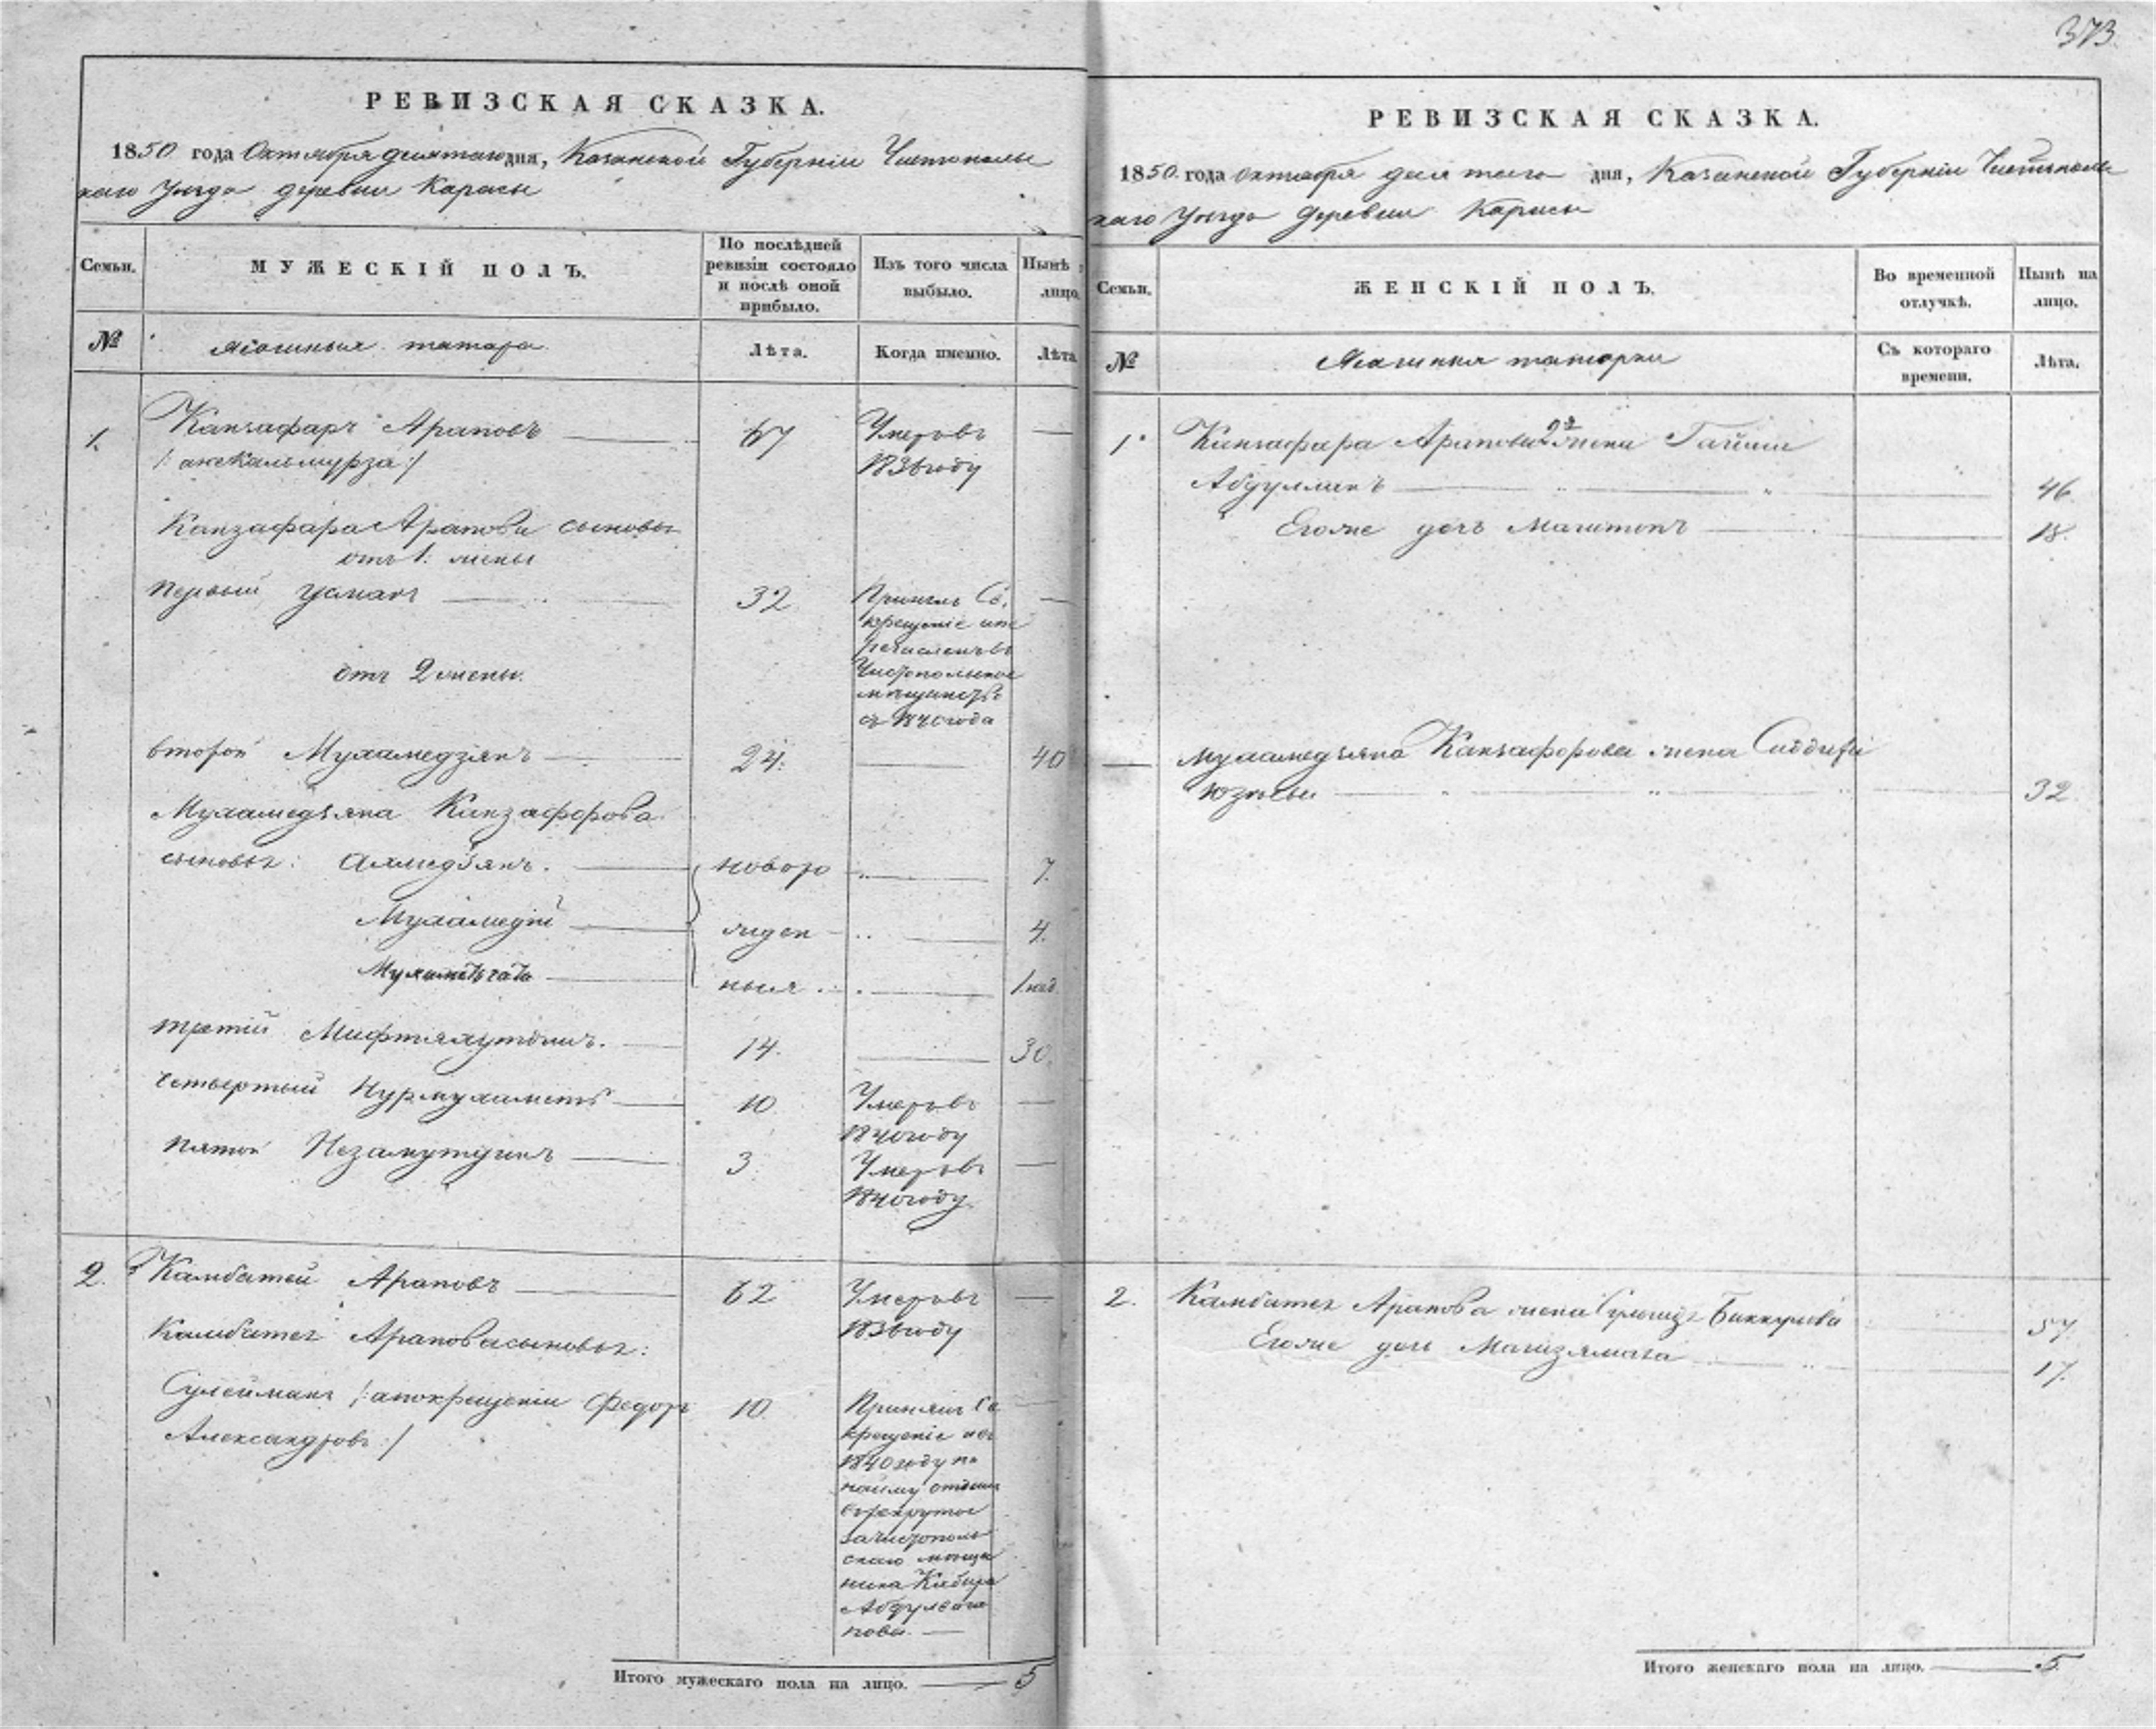 373.
РЕВИЗСКАЯ СКАЗКА.
1850 года Октября девятаго дня, Казанской Губерніи Чистополь
скаго Уезда деревни Карасы
Семьи.
МУЖЕСКІЙ ПОЛЪ.
По послѣдней ревизіи состояло и послѣ оной прибыло.
Изъ того числа выбыло.
Нынѣ лицо.
№
Ясашныя татара
Лѣта.
Когда именно.
Лѣта
1.
Канзафаръ Араповъ — 67 Умеръ въ —
1836 году
Канзафара Арапова сыновья
отъ 1. жены
Первый Усманъ — 32 —
Св.
крещеніе
Чистопольское
съ 1840 года
отъ 2 жены.
второй Мухамедзянъ — 24. — 40
Мухамедзяна Канзафорова
сыновья: Ахмедзянъ. — новоро — 7.
Мухамедій — жден — 4.
— ныя — 1.
третій Мифтяхутдинъ. — 14. — 30.
четвертый Нурмухаметъ — 10 Умеръ въ —
1840 году
пятой Незамутдинъ — 3. Умеръ въ —
1840 году.
2. Камбатей Араповъ — 62 Умеръ въ —
1836 году
Арапова сыновья:
Сулейманъ /: а по крещеніи Федоръ
Александровъ :/
10. —
Принялъ Св.
крещеніе и въ
1840 году по
найму отданъ
въ рекруты
за чистополь
скаго меща
нина Кабира
Абдул
нова. —
Итого мужескаго пола на лицо. — 5
РЕВИЗСКАЯ СКАЗКА.
1850. года Октября девятаго дня, Казанской Губерніи Чистополь
скаго Уезда деревни Карасы
Семьи.
ЖЕНСКІЙ ПОЛЪ.
Во временной отлучкѣ.
Нынѣ на лицо.
№
Ясашныя татарки
Съ котораго времени.
Лѣта.
1. Канзафара Арапова 2я жена
— 46.
Егоже дочь — 18.
— Мухамедзяна Канзафорова жена
— 32.
2. Арапова жена — 57.
Егоже дочь — 17.
Итого женскаго пола на лицо. — 5.